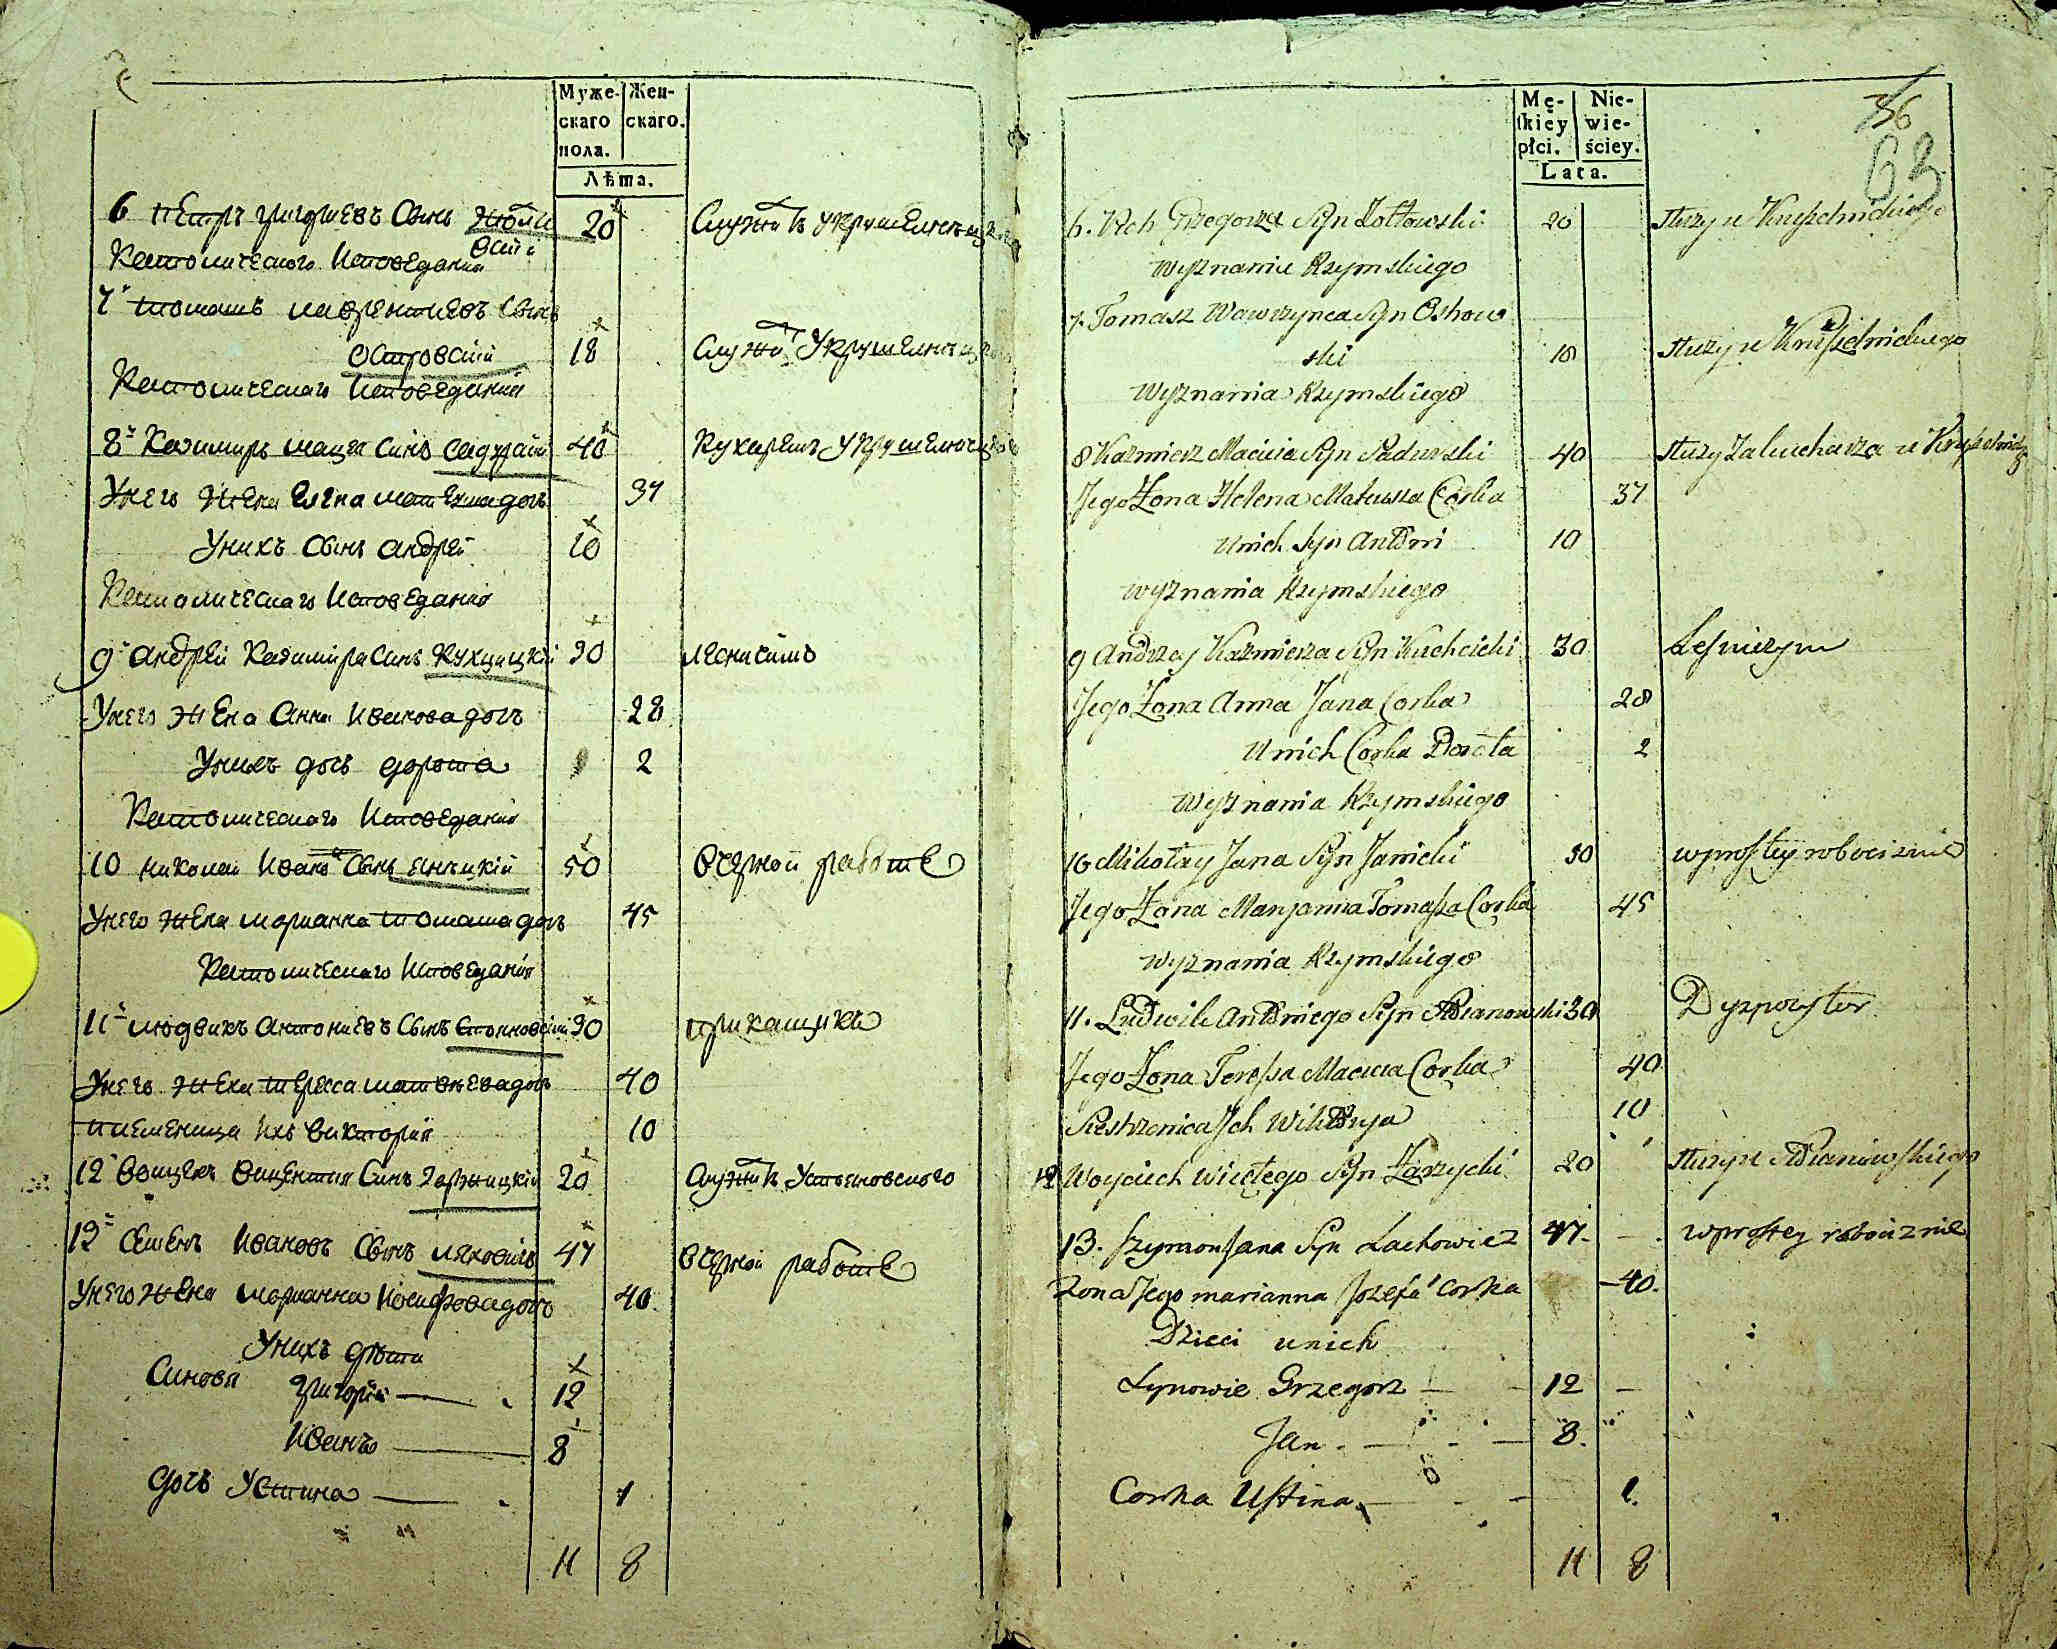 Муже-
скаго
пола.
Жен-
скаго.
Лѣта.
6 Петръ григориевъ Сынъ Жолто
вский
20
Служитъ у крушелницкаго
Католическаго Исповедания
7 томашъ лаврентиевъ Сынъ
островский
18
Служитъ у крушелницкаго
Католическаго Исповедания
8 Казимиръ мацея Синъ садурский
40
Кухаремъ у крушелницкаго
Унего жена Елена матеушадочъ
37
Унихъ Сынъ андрей
10
Католическаго Исповедания
9 андрей Казимира Синъ Кухцицкий
30
леснитимъ
Унего жена Анна Иванова дочъ
28
Унихъ дочъ дорота
2
Католическаго Исповедания
10 николай Ивана Сынъ яницкий
50
в черной работе
Унего жена марианна томаша дочъ
45
Католическаго Исповедания
11 людвикъ антониевъ Сынъ стояновский
30
прикащикъ
Унего жена тересса матвеева дочъ
40
племеница ихъ виктория
10
12 войцехъ вицентия Синъ
20
Служитъ Устояновскаго
13 семенъ Ивановъ Сынъ ляховичъ
47
в черной работе
Унего жена марианна Иосифова дочъ
40.
Унихъ дѣти
Синовя григорий
12
Иванъ
8
дочъ Устина
1
11 8
Mę-
skiey
płci.
Nie-
wie-
ściey.
Lata.
36
63
6. Grzegorza Syn Zołtowski
20
służy u Kruszelnickiego
wyznania Rzymskiego
7. Tomasz Wawrzyńca Syn Ostrow
ski
18
służy u Kruszelnickiego
wyznania Rzymskiego
8 Kazmierz Macieia Syn Sadurski
40
służy za kucharza u Kruszelnickiego
Jego Żona Helena Mateusza Corka
37
Unich Syn Antoni
10
wyznania Rzymskiego
9 Andrzej Kazmierza Syn Kuchcicki
30
Leśniczym
Jego Żona Anna Jana Corka
28
Unich Corka Dorota
2
wyznania Rzymskiego
10 Mikołay Jana Syn Janicki
50
w prostey robociznie
Jego Żona Maryanna Tomasza Corka
45
wyznania Rzymskiego
11. Ludwik Antoniego Syn Stoianowski
30
Dyspozytor
Jego Żona Teressa Macieia Corka
40
Siestrzenica Jch Wiktorya
10
12 Woyciech Wincętego Syn Zarzycki
20
służy u Stoianowskiego
13. Szymon Jana Syn Lachowicz
47.
w prostey robociznie
Zona Jego marianna Jozefa Corka
40.
Dzieci unich
Synowie Grzegorz
12
Jan
8.
Corka Ustina
1.
11 8